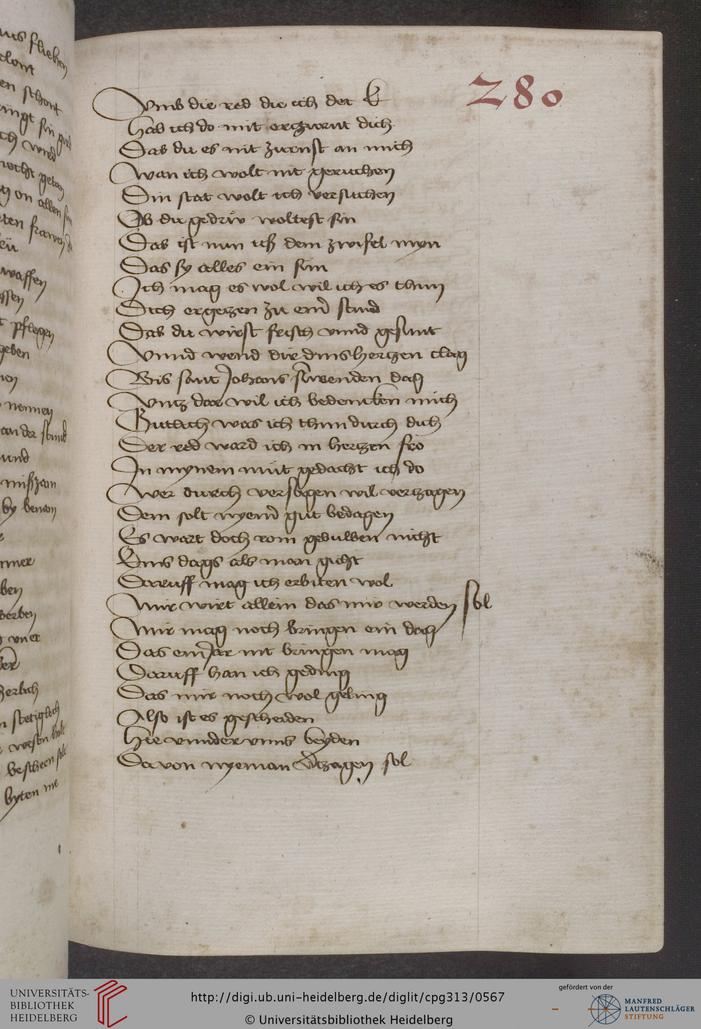 280
Vmb die red die ich det
Hab ich do mit erzurnt dich
Das du es nit zurnst an mich
Wan ich wolt nit geruchen
Din stat wolt ich versuchen
Ob du gedrüw woltest sin
Das ist nun uß dem zwifel myn
Das sy alles ein sun
Ich mag es wol wil ich es thun
Dich ergetzen zu einer stund
Das du wirst frisch vnnd gesunt
Vnnd wend dir dins hertzen clag
Bis sant Johans suwenden dag
Vntz dar wil ich bedencken mich
Gutlich was ich thun durch dich
Der red ward ich in hertzen fro
In mynem mut gedacht ich do
Wer durch versagen wil verzagen
Dem solt nyemer gut bedagen
Es wart doch rom gebuwen nicht
Eins dags als man gicht
Daruff mag ich erbiten wol
Mir wirt allein das mir werden sol
Mir mag noch bringen ein dag
Das ein Jar nit bringen mag
Daruff han ich geding
Das mir noch wol geling
Also ist es gescheiden
Hie vnnder vnns beyden
Da von nyeman verzagen sol
UNIVERSITÄTS-
BIBLIOTHEK
HEIDELBERG
http://digi.ub.uni-heidelberg.de/diglit/cpg313/0567
© Universitätsbibliothek Heidelberg
gefördert von der
MANFRED
LAUTENSCHLÄGER
STIFTUNG